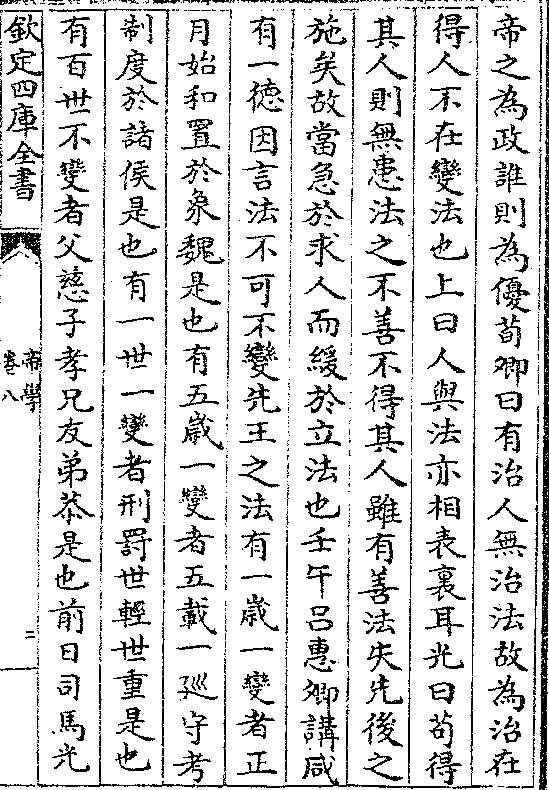 帝之為政誰則為優荀卿曰有治人無治法故為治在
得人不在變法也上曰人與法亦相表裏耳光曰苟得
其人則無患法之不善不得其人雖有善法失先後之
施矣故當急於求人而緩於立法也壬午吕惠卿講咸
有一徳因言法不可不變先王之法有一歳一變者正
月始和置於象魏是也有五歳一變者五載一廵守考
制度於諸侯是也有一世一變者刑罰世輕世重是也
有百世不變者父慈子孝兄友弟恭是也前日司馬光
欽定四庫全書
帝學
卷八
二